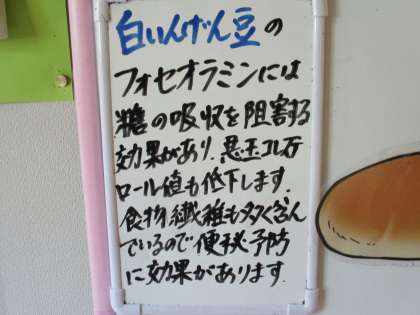 白いんげん豆の
フォセオラミンには
糖の吸収を阻害する
効果があり、悪玉コレステ
ロール値も低下します。
食物繊維も多く含ん
でいるので便秘予防
に効果があります。